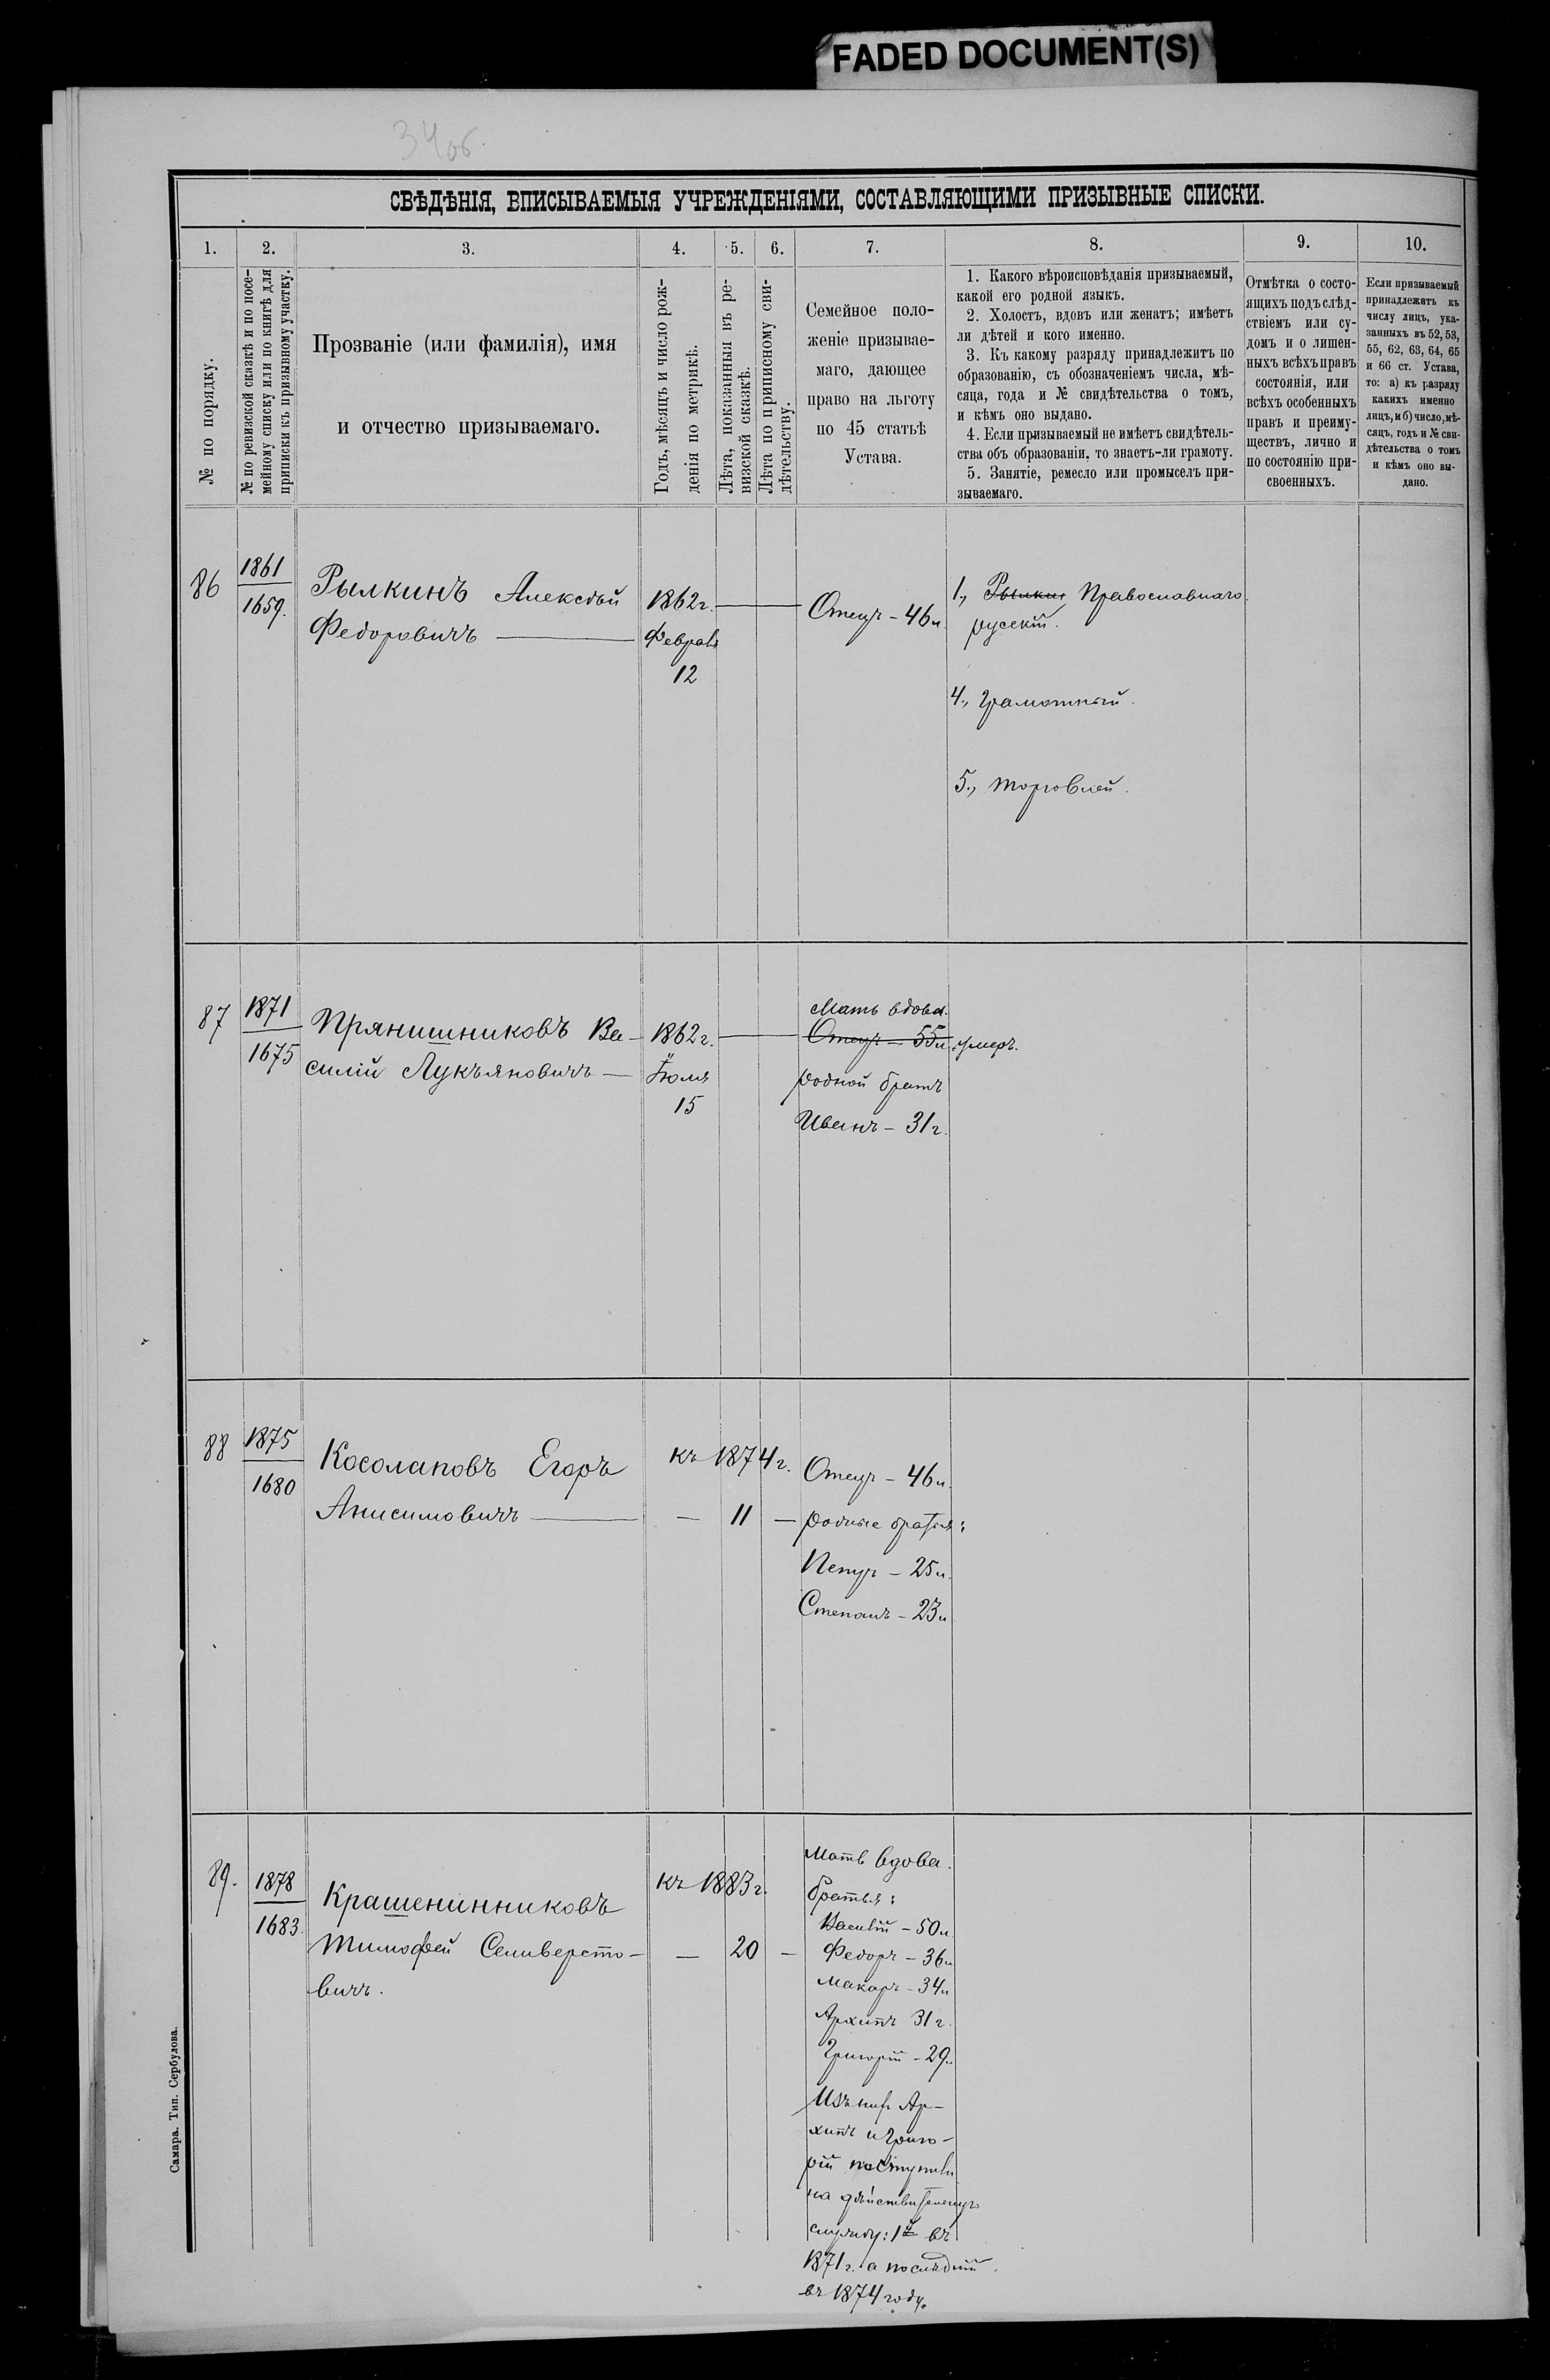 FADED DOCUMENT(S)
34об
СВѢДѢНІЯ, ВПИСЫВАЕМЫЯ УЧРЕЖДЕНІЯМИ, СОСТАВЛЯЮЩИМИ ПРИЗЫВНЫЕ СПИСКИ.
1.
2.
3.
4.
5.
6.
7.
8.
9.
10.
№ по порядку.
№ по ревизской сказкѣ и по посе-
мейному списку или по книгѣ для
приписки къ призывному участку.
Прозваніе (или фамилія), имя
и отчество призываемаго.
Годъ, мѣсяцъ и число рож-
денія по метрикѣ.
Лѣта, показанныя въ ре-
визской сказкѣ.
Лѣта по приписному сви-
дѣтельству.
Семейное поло-
женіе призывае-
маго, дающее
право на льготу
по 45 статьѣ
Устава.
1. Какого вѣроисповѣданія призываемый,
какой его родной языкъ.
2. Холостъ, вдовъ или женатъ; имѣетъ
ли дѣтей и кого именно.
3. Къ какому разряду принадлежитъ по
образованію, съ обозначеніемъ числа, мѣ-
сяца, года и № свидѣтельства о томъ,
и кѣмъ оно выдано.
4. Если призываемый не имѣетъ свидѣтель-
ства объ образованіи, то знаетъ-ли грамоту.
5. Занятіе, ремесло или промыселъ при-
зываемаго.
Отмѣтка о состо-
ящихъ подъ слѣд-
ствіемъ или су-
домъ и о лишен-
ныхъ всѣхъ правъ
состоянія, или
всѣхъ особенныхъ
правъ и преиму-
ществъ, лично и
по состоянію при-
своенныхъ.
Если призываемый
принадлежитъ къ
числу лицъ, ука-
занныхъ въ 52, 53,
55, 62, 63, 64, 65
и 66 ст. Устава,
то: а) къ разряду
какихъ именно
лицъ, и б) число, мѣ-
сяцъ, годъ и № сви-
дѣтельства о томъ
и кѣмъ оно вы-
дано.
86
1861
1659.
Рылкинъ Алексѣй
Федоровичъ —
1862 г.
Февраля
12
Отецъ - 46 л.
1., Рылкин Православнаго
русскій.
4., Грамотный.
5., торговлей.
87
1871
1675
Прянишниковъ Ва-
силій Лукъяновичъ —
1862 г.
Іюля
15
Мать вдова.
Отецъ - 55 л. умеръ.
родной братъ
Иванъ - 31 г.
88
1875
1680
Косолаповъ Егоръ
Анисимовичъ —
къ 1874 г.
— 11 —
Отецъ - 46 л.
родные братья:
Петръ - 25 л.
Степанъ - 23 л.
89.
1878
1683.
Крашенинниковъ
Тимофей Селиверсто-
вичъ.
къ 1883 г.
— 20 —
Мать вдова.
братья:
Василій - 50 л.
Федоръ - 36 л.
Макаръ - 34 л.
Архипъ 31 г.
Григорій - 29 л.
Изъ нихъ Ар-
хипъ и Григо-
рій поступили
на дѣйствительную
службу: 1й въ
1871 г. а послѣдній
въ 1874 году.
Самара. Тип. Сербулова.